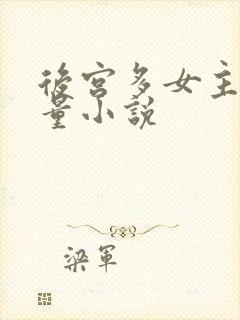 後宮多女主
量小說
梁軍